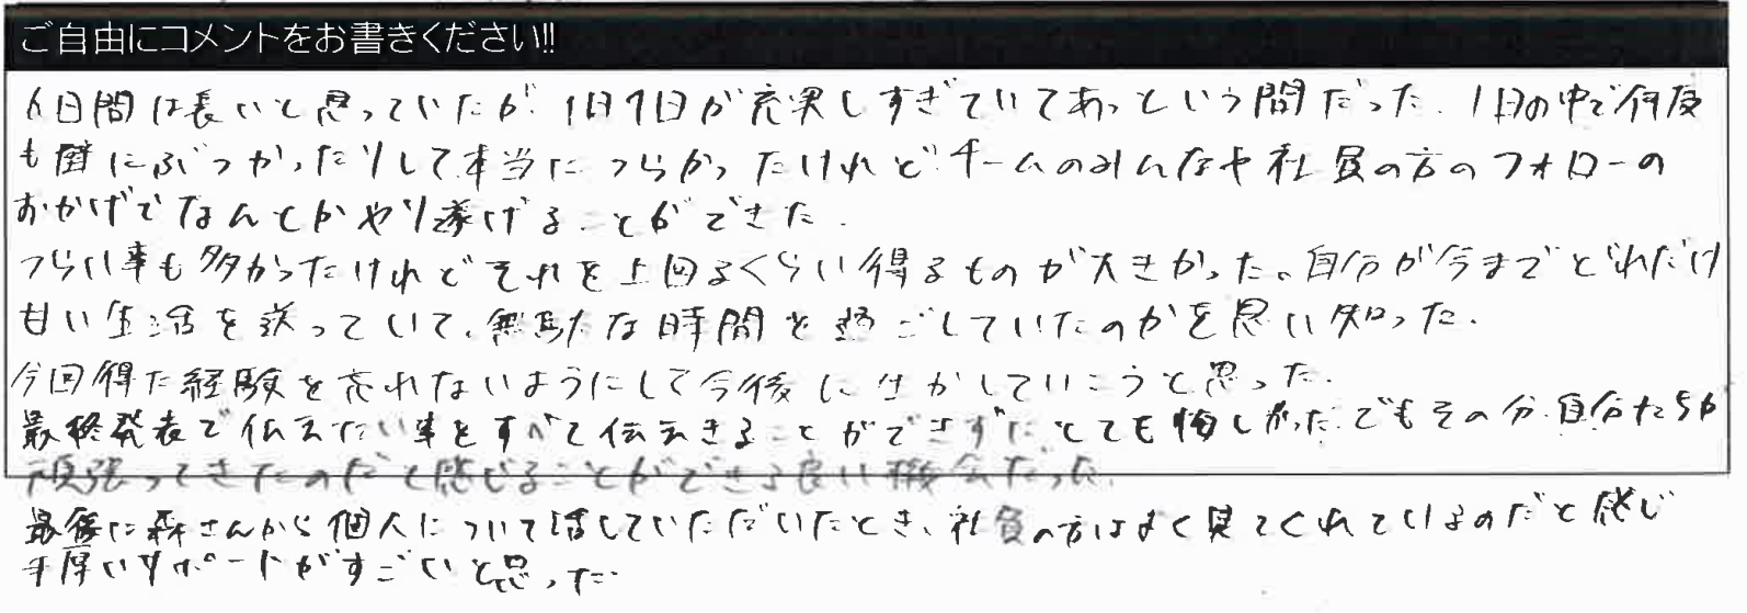 ご自由にコメントをお書きください!!
6日間は長いと思っていたが、1日1日が充実しすぎていてあっという間だった。1日の中で何度
も壁にぶつかったりして本当につらかったけれど、チームのみんなや社員の方のフォローの
おかげでなんとかやり遂げることができた。
つらい事も多かったけれどそれを上回るくらい得るものが大きかった。自分が今までどれだけ
甘い生活を送っていて、無駄な時間を過ごしていたのかを思い知った。
今回得た経験を忘れないようにして今後に生かしていこうと思った。
最終発表で伝えたい事をすべて伝えきることができずにとても悔しかった。でもその分、自分たちが
頑張ってきたのだと感じることができる良い機会だった。
最後に森さんから個人について話していただいたとき、社員の方はよく見てくれているのだと感じ
手厚いサポートがすごいと思った。